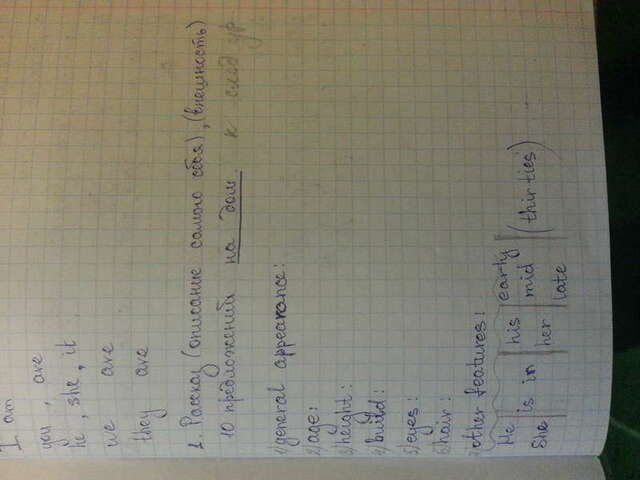 I am
you, are
he, she, it
we are
they are
1. Рассказ (описание самого себя), (внешность)
10 предложений на дом. к след ур
1) general appearance:
2) age:
3) height:
4) build:
5) eyes:
6) hair:
other features:
He is in his early
She her mid (thirties)
late